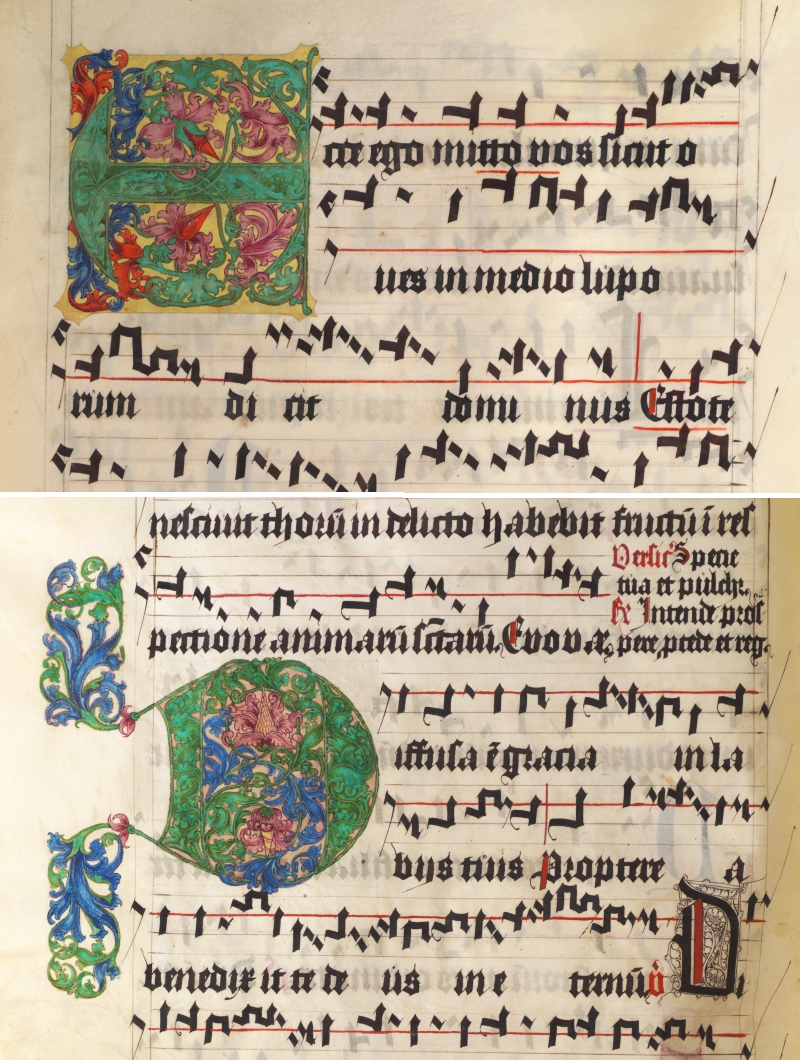 Ecce ego mitto vos sicut o
ues in medio lupo
rum di cit domi nus Estote
nesciuit thorū in delicto habebit fructū ī res
Versic' Specie
tua et pulchr.
pectione animarū sctārū. Evovae
℟ Intende pros
pere, pcede et reg.
Diffusa ē gracia in la
bijs tuis Proptere a
benedixit te de us in e ternū ℣ D i